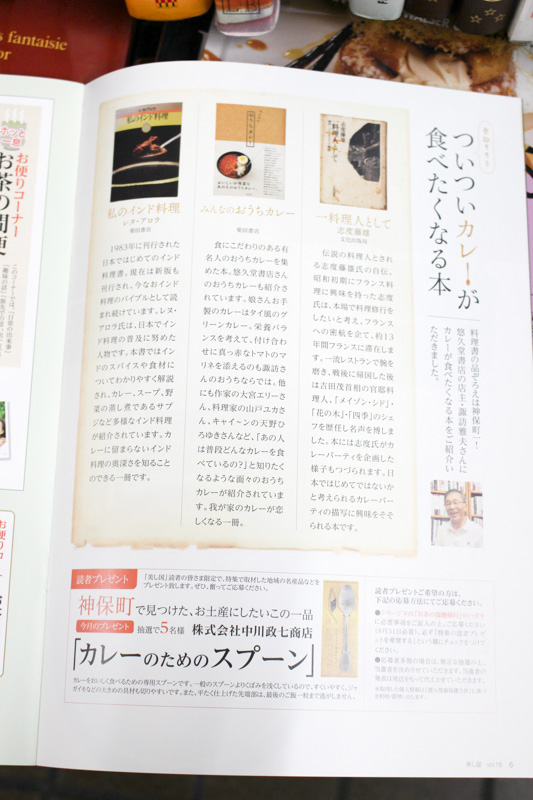 s fantaisie
or
ついついカレーが
食べたくなる本
料理書の品ぞろえは神保町一！
悠久堂書店の店主・諏訪雅夫さんに
カレーが食べたくなる本をご紹介い
ただきました。
一料理人として
志度藤雄
文化出版局
伝説の料理人とされ
る志度藤雄氏の自伝。
昭和初期にフランス料
理に興味を持った志度
氏は、本場で料理修行を
したいと考え、フランス
への密航を企て、約13
年間フランスに滞在しま
す。一流レストランで腕を
磨き、戦後に帰国した後
は吉田茂首相の官邸料
理人、「メイゾン・シド」・
「花の木」・「四季」のシェ
フを歴任し名声を博しま
した。本には志度氏がカ
レーパーティを企画した
様子もつづられます。日
本ではじめてではないか
と考えられるカレーパー
ティの描写に興味をそそ
られる本です。
みんなのおうちカレー
柴田書店
食にこだわりのある有
名人のおうちカレーを集
めた本。悠久堂書店さん
のおうちカレーも紹介さ
れています。娘さんお手
製のカレーはタイ風のグ
リーンカレー。栄養バラ
ンスを考えて、付け合わ
せに真っ赤なトマトのマ
リネを添えるのも諏訪さ
んのおうちならでは。他
にも作家の大宮エリーさ
ん、料理家の山戸ユカさ
ん、キャイ～ンの天野ひ
ろゆきさんなど、「あの人
は普段どんなカレーを食
べているの？」と知りたく
なるような面々のおうち
カレーが紹介されていま
す。我が家のカレーが恋
しくなる一冊。
私のインド料理
レヌ・アロラ
柴田書店
1983年に刊行された
日本ではじめてのインド
料理書。現在は新版も
刊行され、今なおインド
料理のバイブルとして読
まれ続けています。レヌ・
アロラ氏は、日本でイン
ド料理の普及に努めた
人物です。本書ではイン
ドのスパイスや食材に
ついてわかりやすく解説
され、カレー、スープ、野
菜の蒸し煮であるサブ
ジなど多様なインド料理
が紹介されています。カ
レーに留まらないインド
料理の奥深さを知ること
のできる一冊です。
読者プレゼント
「美し国」読者の皆さま限定で、特集で取材した地域の名産品などを
プレゼント致します。ぜひ、奮ってご応募ください。
神保町で見つけた、お土産にしたいこの一品
今月のプレゼント
抽選で5名様 株式会社中川政七商店
「カレーのためのスプーン」
カレーをおいしく食べるための専用スプーンです。一般のスプーンよりくぼみを浅くしているので、すくいやすく、ジャ
ガイモなどの大きめの具材も切りやすいです。また、平たく仕上げた先端部は、最後のご飯一粒まで逃がしません。
読者プレゼントご希望の方は、
下記の応募方法にてご応募ください。
お便りコーナー
お茶の間便
美し国 vol.16 6